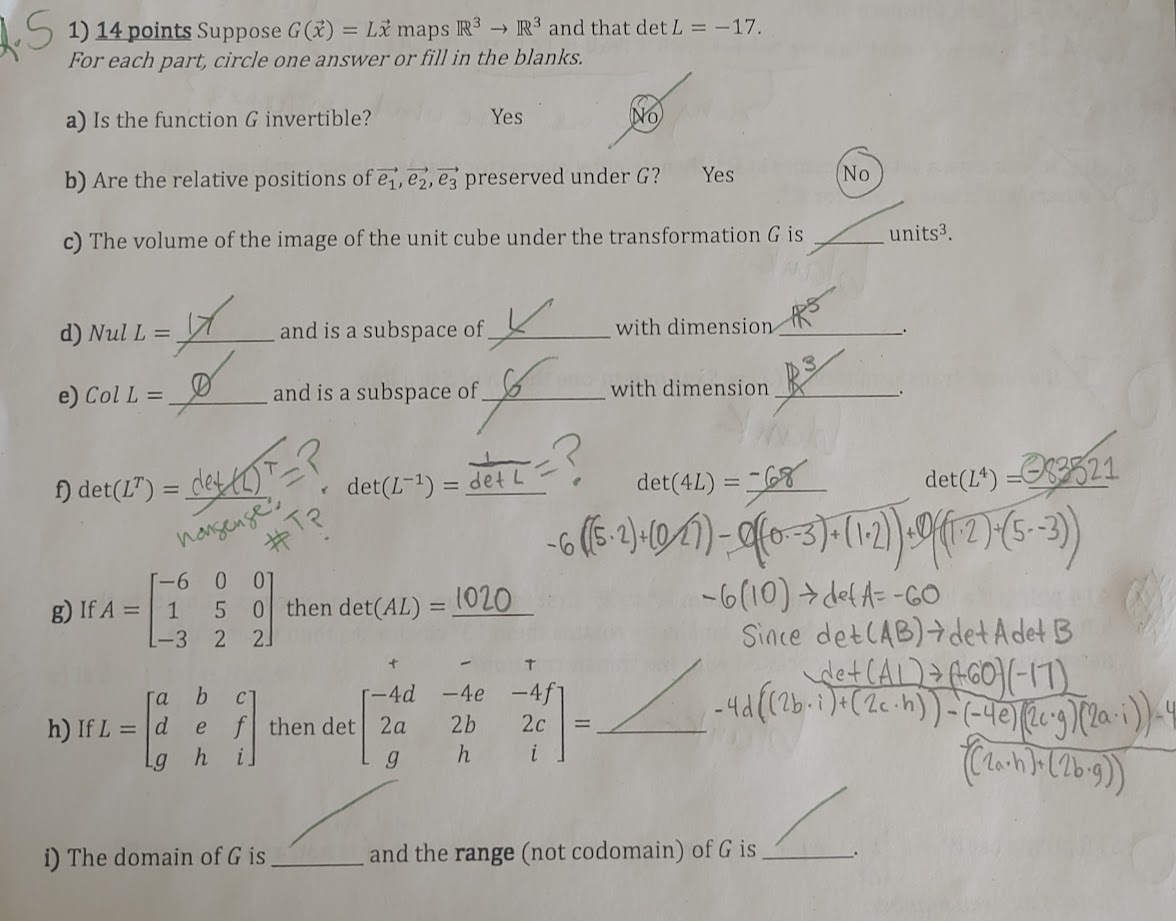 1) 14 points Suppose G(x⃗) = Lx⃗ maps ℝ³ → ℝ³ and that det L = −17.
For each part, circle one answer or fill in the blanks.
a) Is the function G invertible? Yes No
b) Are the relative positions of e₁⃗, e₂⃗, e₃⃗ preserved under G? Yes No
c) The volume of the image of the unit cube under the transformation G is ______ units³.
d) Nul L = 17 and is a subspace of L with dimension ℝ³.
e) Col L = 0 and is a subspace of G with dimension ℝ³.
f) det(Lᵀ) = det(L)ᵀ =? . det(L⁻¹) = 1/det L =? det(4L) = -68 det(L⁴) = -83521
nonsense, #T?
-6((5·2)+(0·2)) - 0((0·-3)+(1·2))+0((1·2)+(5·-3))
-6(10) → det A = -60
g) If A = [−6 0 0; 1 5 0; −3 2 2] then det(AL) = 1020
Since det(AB) → det A det B
det(AL) → (-60)(-17)
+ - +
h) If L = [a b c; d e f; g h i] then det [−4d −4e −4f; 2a 2b 2c; g h i] = ______
-4d((2b·i)+(2c·h)) - (-4e)(2c·g)(2a·i)) -4
((2a·h)+(2b·g))
i) The domain of G is ______ and the range (not codomain) of G is ______.